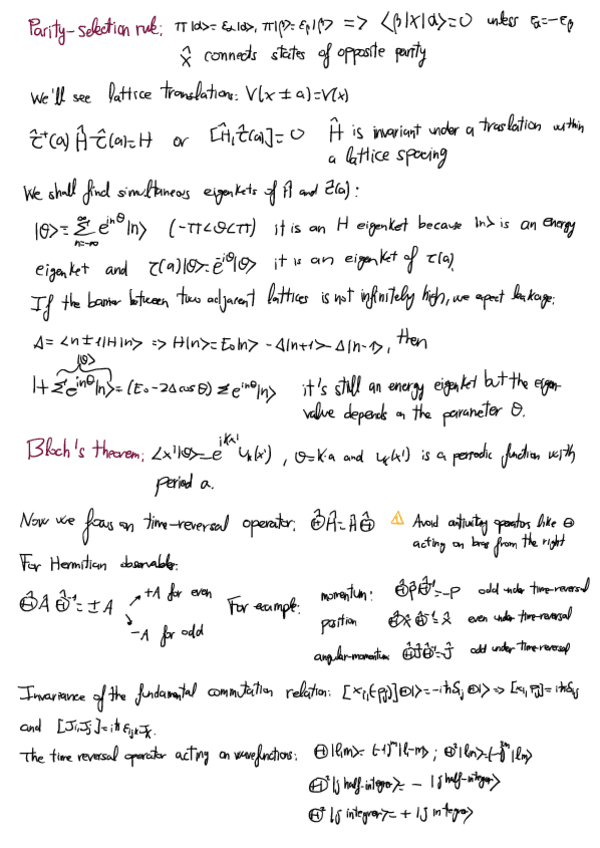 Parity-selection rule: π|α>=εα|α>, π|β>=εβ|β> => <β|x|α>=0 unless εα=-εβ
x̂ connects states of opposite parity
We'll see lattice translation: V(x±a)=V(x)
τ̂⁺(a) Ĥ τ̂(a)=H or [Ĥ,τ̂(a)]=0 Ĥ is invariant under a traslation within
a lattice spacing
We shall find simultaneous eigenkets of Ĥ and τ̂(a):
|θ>=Σ_{n=-∞}^{∞} e^{inθ}|n> (-π<θ<π) it is an H eigenket because |n> is an energy
eigenket and τ(a)|θ>=e^{-iθ}|θ> it is an eigenket of τ(a).
If the barrier between two adjacent lattices is not infinitely high, we expect leakage:
Δ=<n±1|H|n> => H|n>=E₀|n> -Δ|n+1>-Δ|n-1>, then
|θ>
H Σ e^{inθ}|n>=(E₀-2Δcosθ) Σ e^{inθ}|n> it's still an energy eigenket but the eigen-
value depends on the parameter θ.
Bloch's theorem: <x'|θ>=e^{ikx'} u_k(x') , θ=ka and u_k(x') is a periodic function with
period a.
Now we focus on time-reversal operator: Θ̂Ĥ=ĤΘ̂ ⚠ Avoid antiunitary operators like Θ
acting on bras from the right
For Hermitian observable:
Θ̂ Â Θ̂⁻¹=±A +A for even
-A for odd
For example: momentum: Θ̂P̂Θ̂⁻¹=-P odd under time-reversal
position Θ̂x̂Θ̂⁻¹=x̂ even under time-reversal
angular-momentum Θ̂ĴΘ̂⁻¹=Ĵ odd under time-reversal
Invariance of the fundamental commutation relation: [x_i,(-p_j)]Θ|>=-iħδ_ij Θ|> => [x_i,p_j]=iħδ_ij
and [J_i,J_j]=iħ ε_ijk J_k.
The time reversal operator acting on wavefunctions: Θ|l,m>=(-1)^m|l,-m> ; Θ²|l,m>=(-1)^{2m}|l,m>
Θ²|j half-integer>= - |j half-integer>
Θ²|j integer>= + |j integer>